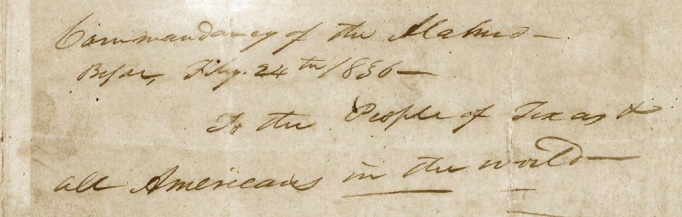 Commandancy of the Alamo—
Bejar, Fby. 24th 1836—
To the People of Texas &
all Americans in the world—